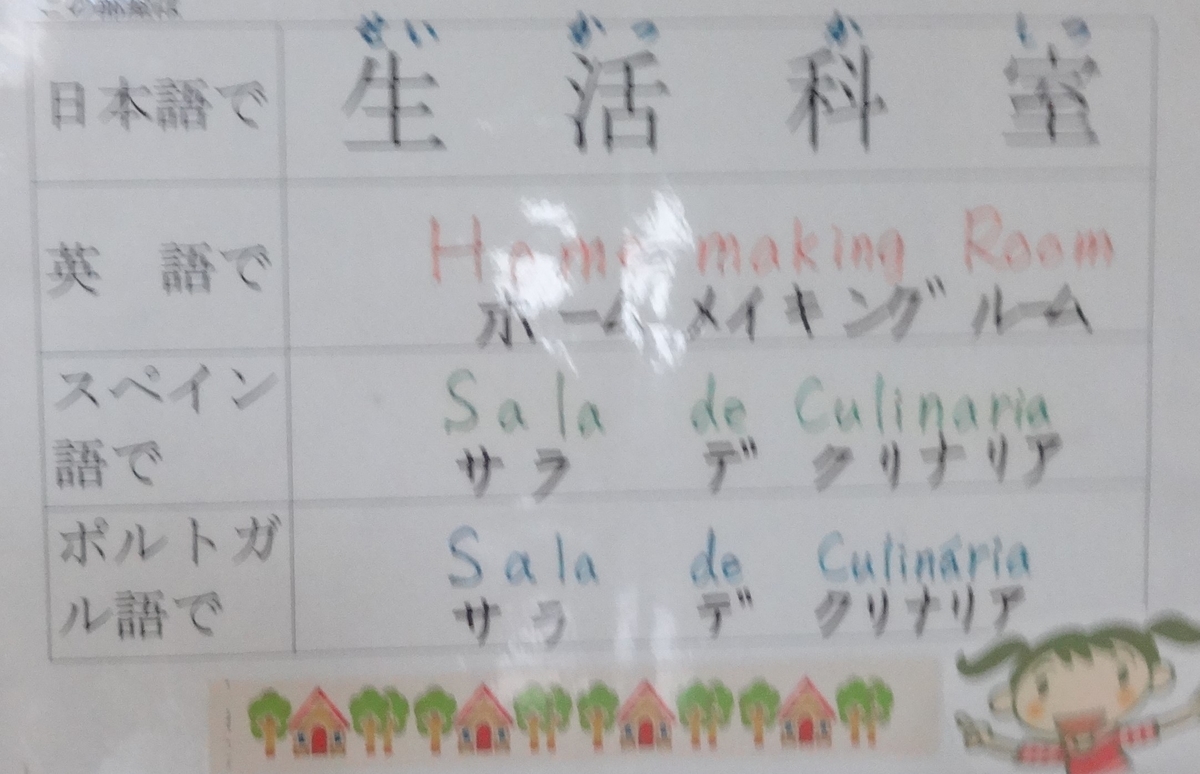 日本語で
せい かつ か しつ
生活科室
英 語で
Home making Room
ホーム メイキング ルーム
スペイン
語で
Sala de Culinaria
サラ デ クリナリア
ポルトガ
ル語で
Sala de Culinária
サラ デ クリナリア